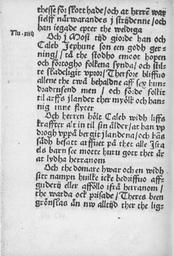 these fö: skort hade/och at herren war
sielff närwarandes j stridenne/och
han iegade epter the weldiga
Och j Most tid giorde han och
Caleb Jephune son en godh ger-
ning/ the stodho emoot hopen
och folket fynda/och stil-
te Ther före bliffuo
allene the twå behaldne aff sex hund-
dradetusend men / och
til arffs landet ther myölk och han-
nig inne flyter
Och herren hölt Caleb widh liffs
krafter alt in til sin ålder/at han vp
drogh vppå bergit j landena/och
sådh besatt arffuit på thet alle Jsra
els barn see motte huru gott thet är
at lydha herranom
Och the domare hwar och en widh
sitt nampn huilke icke bedriffuo aff-
guderij eller affölle ifrå herranom/
the warda ock prisade/ Theras been
grönskas än nw alltid ther the lig-